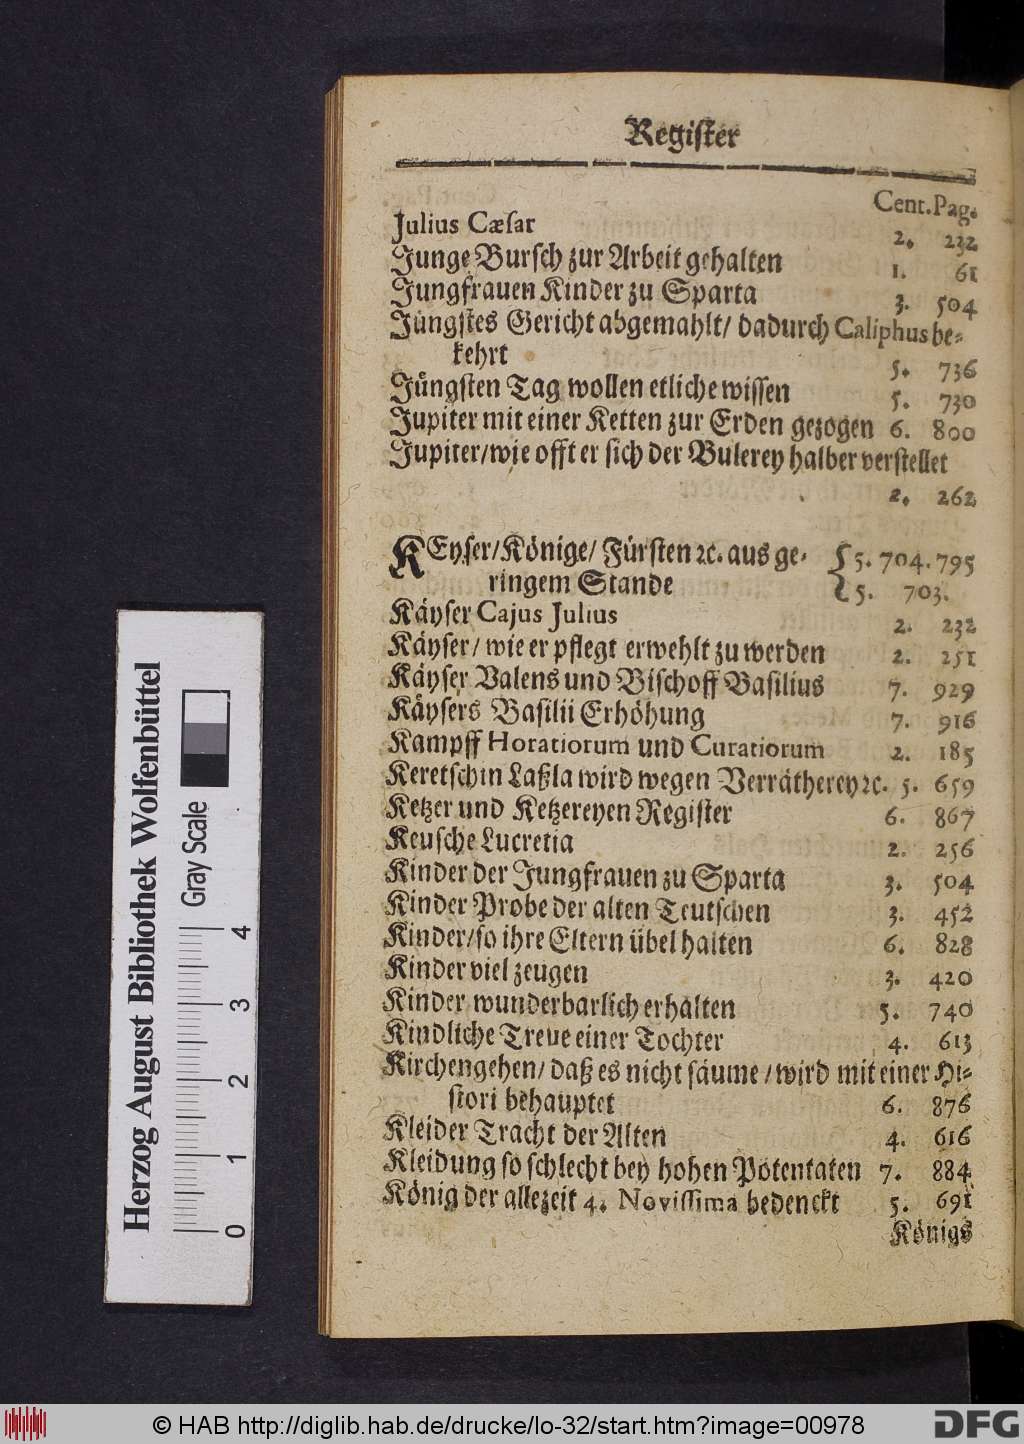 Regiſter
Cent. Pag.
Julius Cæſar 2. 232
Junge Burſch zur Arbeit gehalten 1. 61
Jungfrauen Kinder zu Sparta 3. 504
Jüngſtes Gericht abgemahlt/ dadurch Caliphus be-
kehrt 5. 736
Jüngſten Tag wollen etliche wiſſen 5. 730
Jupiter mit einer Ketten zur Erden gezogen 6. 800
Jupiter/wie offt er ſich der Bulerey halber verſtellet
2. 262
KEyſer/Könige/ Fürſten ꝛc. aus ge- {5. 704. 795
ringem Stande {5. 703.
Käyſer Cajus Julius 2. 232
Käyſer/ wie er pflegt erwehlt zu werden 2. 251
Käyſer Valens und Biſchoff Baſilius 7. 929
Käyſers Baſilii Erhöhung 7. 916
Kampff Horatiorum und Curatiorum 2. 185
Keretſchin Laßla wird wegen Verrätherey ꝛc. 5. 659
Ketzer und Ketzereyen Regiſter 6. 867
Keuſche Lucretia 2. 256
Kinder der Jungfrauen zu Sparta 3. 504
Kinder Probe der alten Teutſchen 3. 452
Kinder/ſo ihre Eltern übel halten 6. 828
Kinder viel zeugen 3. 420
Kinder wunderbarlich erhalten 5. 740
Kindliche Treue einer Tochter 4. 613
Kirchengehen/ daß es nicht ſäume/ wird mit einer Hi-
ſtori behauptet 6. 876
Kleider Tracht der Alten 4. 616
Kleidung ſo ſchlecht bey hohen Potentaten 7. 884
König der allezeit 4. Noviſſima bedenckt 5. 691
Königs
Herzog August Bibliothek Wolfenbüttel
Gray Scale
0 1 2 3 4
© HAB http://diglib.hab.de/drucke/lo-32/start.htm?image=00978
DFG